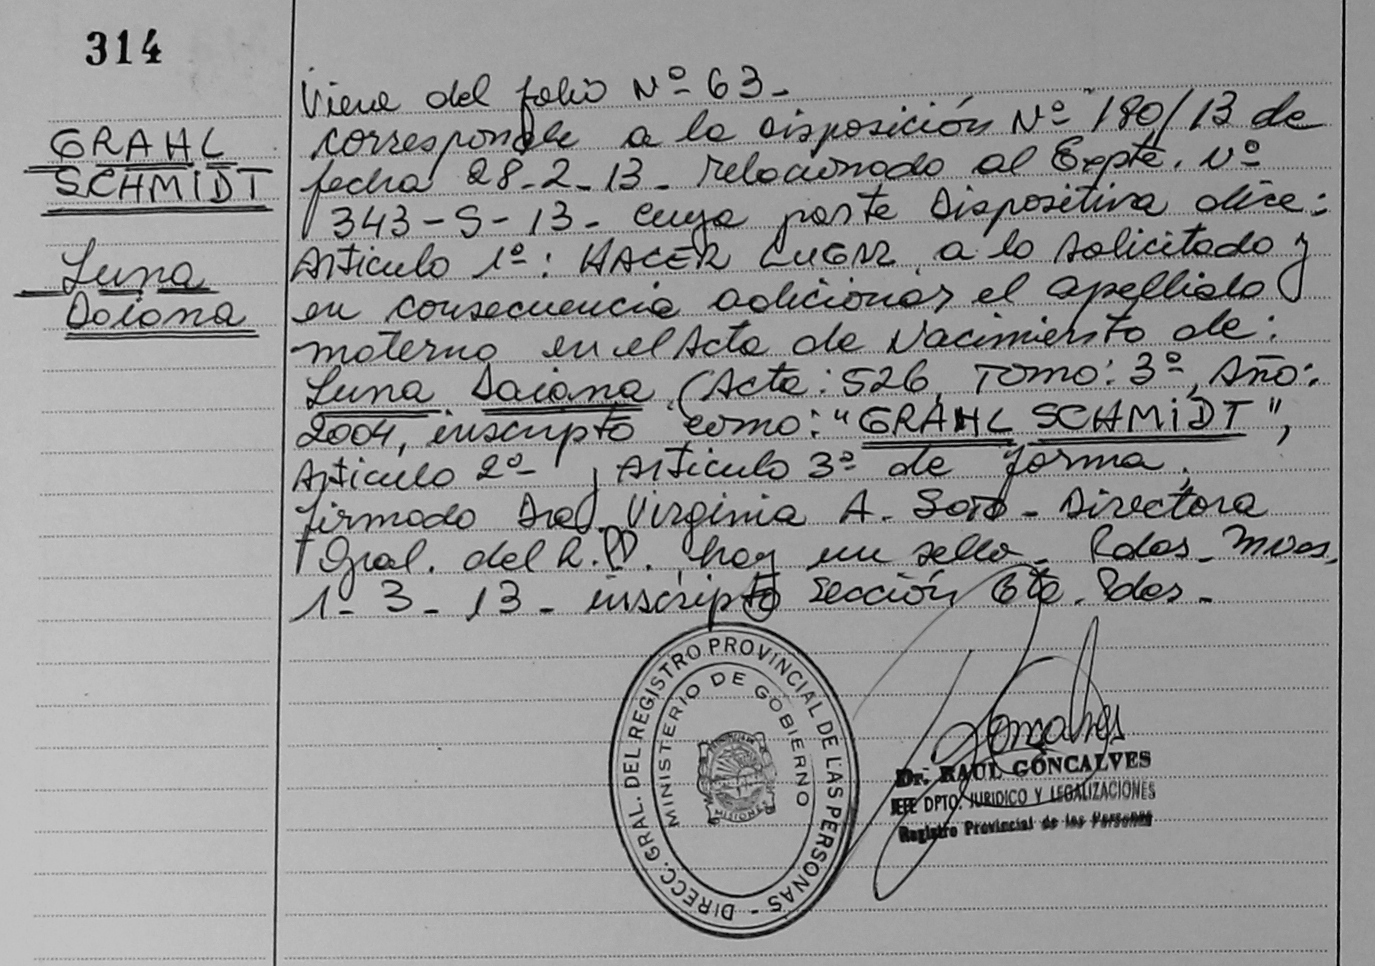 314
GRAHL
SCHMIDT
Luna
Daiana
Viene del folio Nº 63-
corresponde a la disposición Nº 180/13 de
fecha 28-2-13- relacionado al Expte. Nº
343-S-13- cuya parte Dispositiva dice:
Artículo 1º: HACER LUGAR a lo solicitado y
en consecuencia adicionar el apellido
materno en el Acta de Nacimiento de:
Luna Daiana (Acta: 526, Tomo: 3º, Año:
2004, inscripto como: "GRAHL SCHMIDT",
Artículo 2º- y Artículo 3º de forma.
firmado Dra. Virginia A. Soto - Directora
Gral. del R.P. hay un sello- Pdas. Mnes.
1-3-13- inscripto Sección 6ta. Pdas-
DIRECC. GRAL. DEL REGISTRO PROVINCIAL DE LAS PERSONAS -
MINISTERIO DE GOBIERNO
MISIONES
Goncalves
Dr. RAUL GONCALVES
JEFE DPTO. JURIDICO Y LEGALIZACIONES
Registro Provincial de las Personas